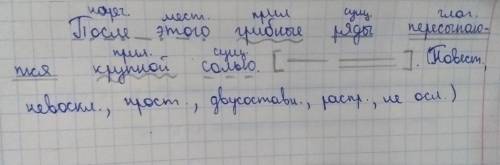 нареч. мест. прил. сущ. глаг.
После этого грибные ряды пересыпаю-
прил. сущ.
тся крупной солью. [ — = ]. (Повест.,
невоскл., прост., двусоставн., распр., не осл.)